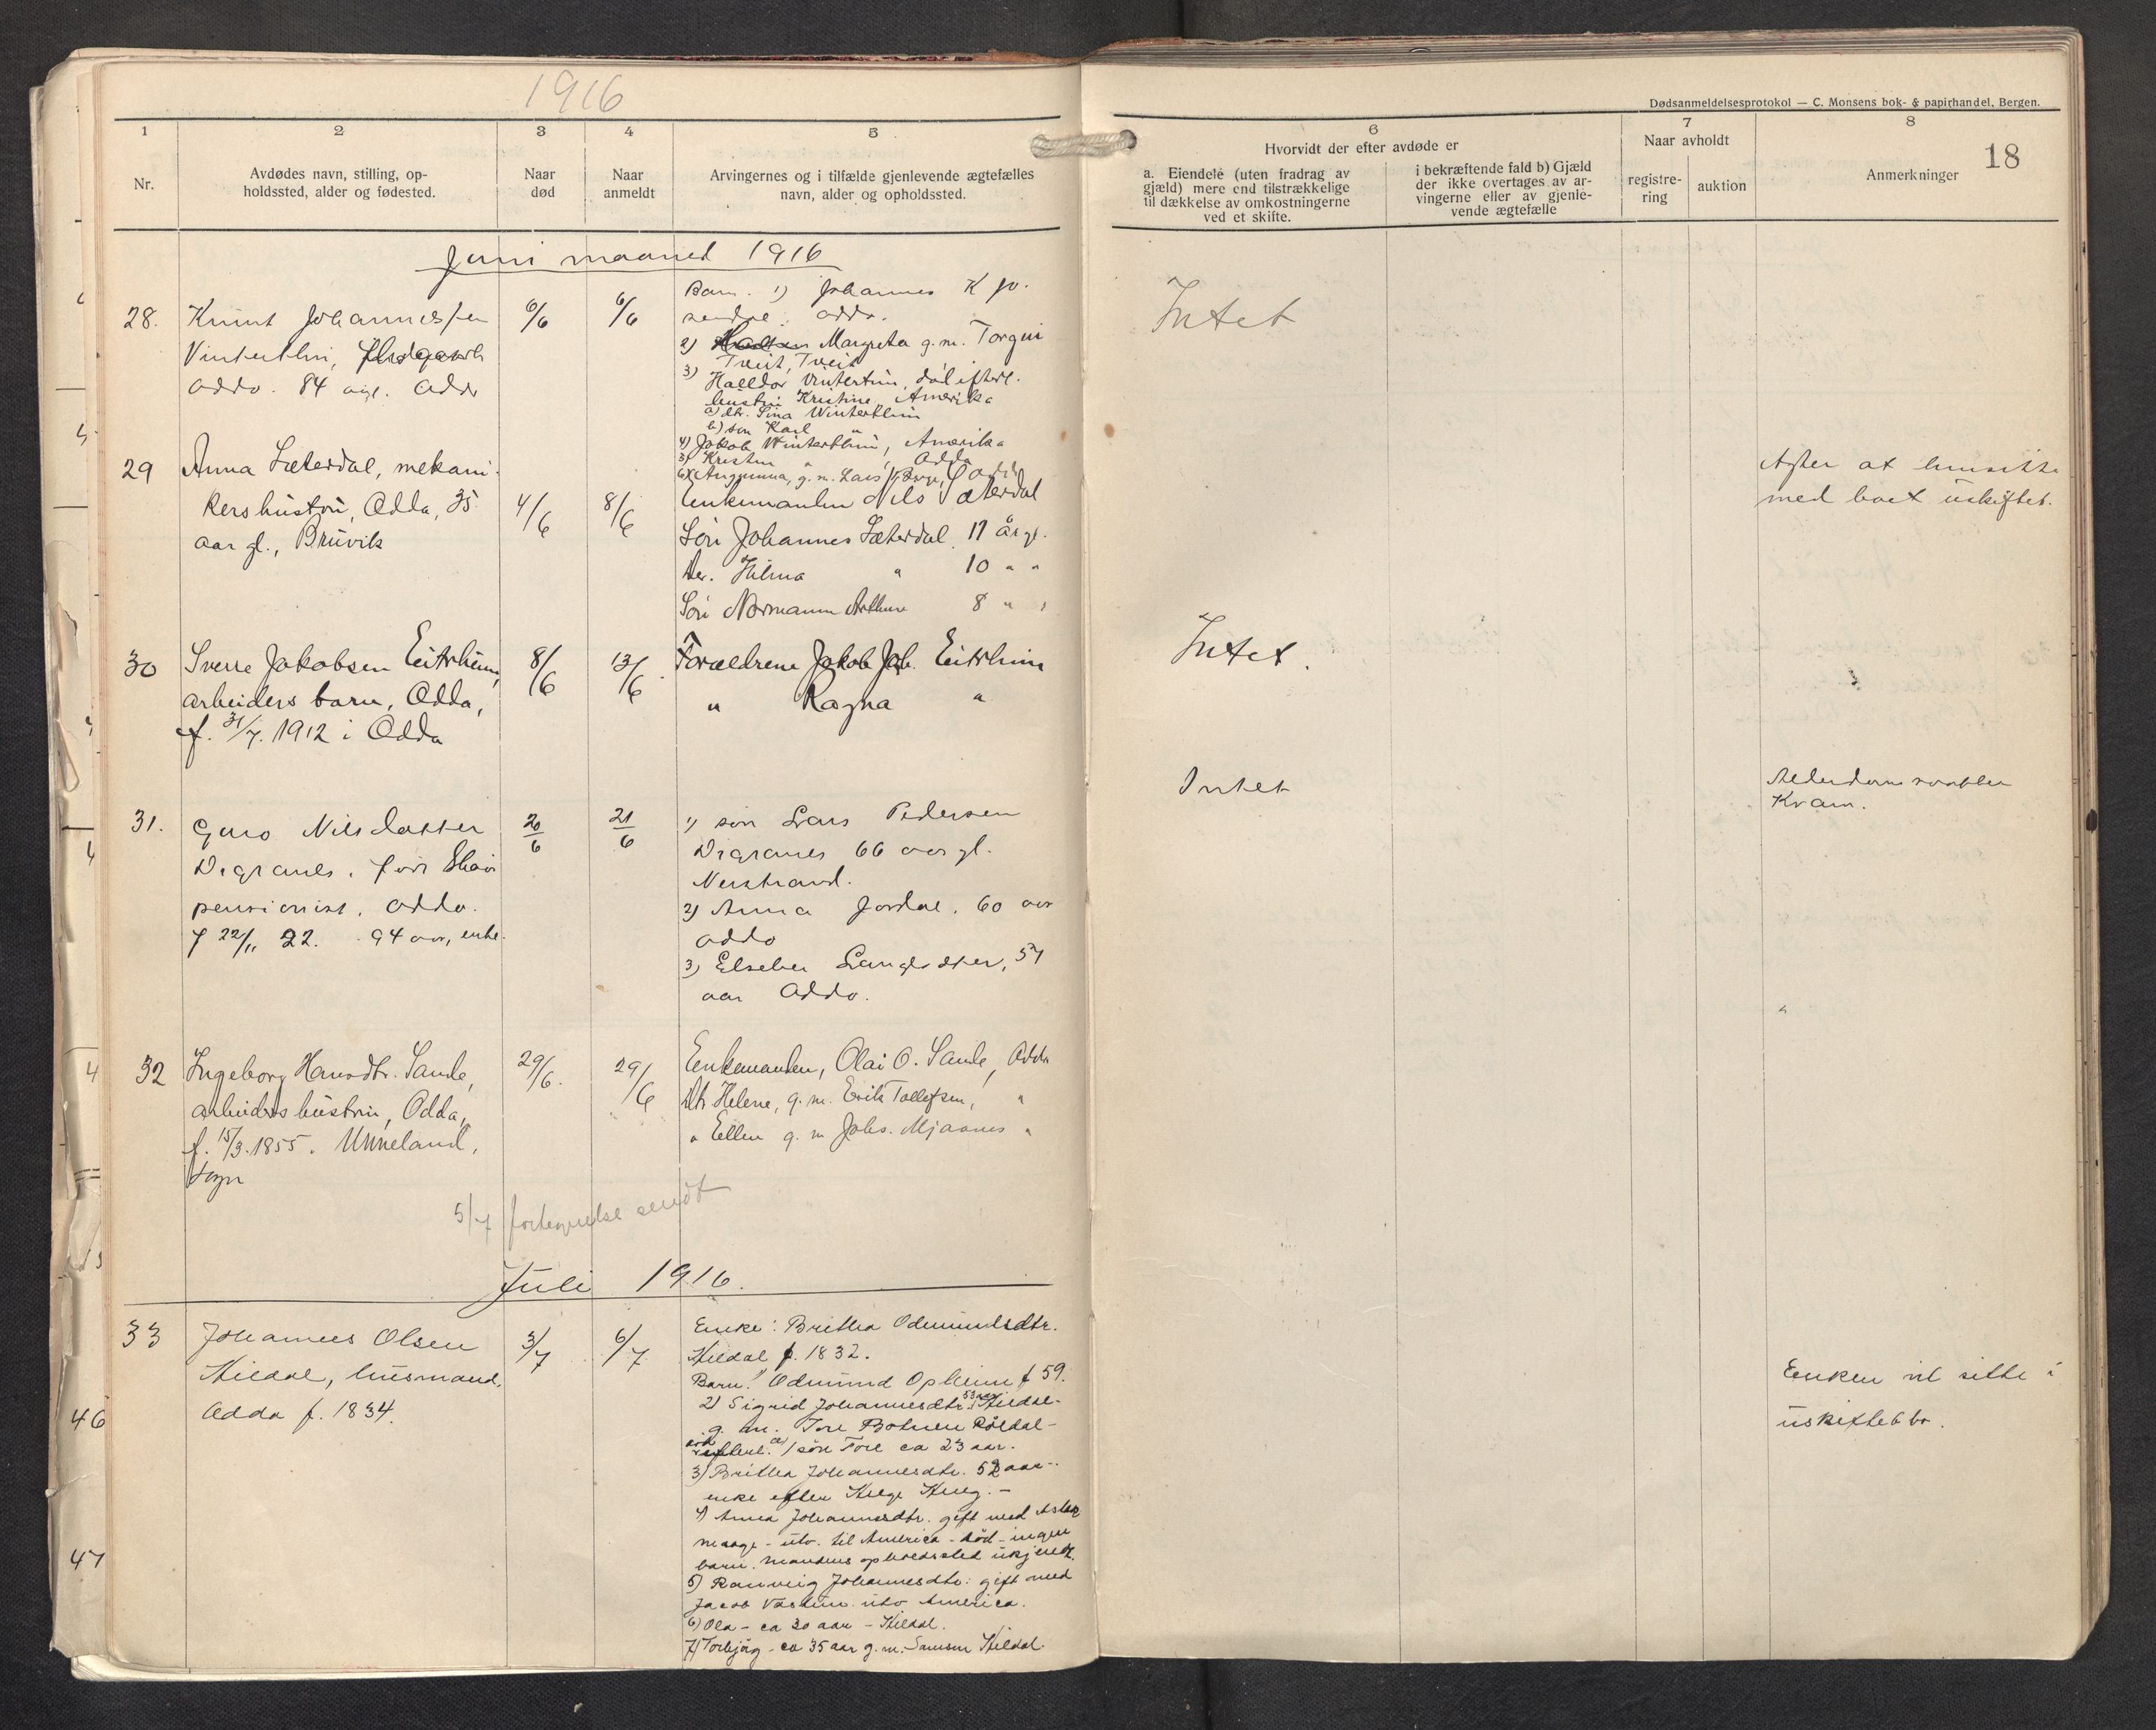 1916
Dødsanmeldelsesprotokol — C. Monsens bok- & papirhandel, Bergen.
18
1
2
3
4
5
6
7
8
Nr.
Avdødes navn, stilling, op-
holdssted, alder og fødested.
Naar
død
Naar
anmeldt
Arvingernes og i tilfælde gjenlevende ægtefælles
navn, alder og opholdssted.
Hvorvidt der efter avdøde er
a. Eiendele (uten fradrag av
gjæld) mere end tilstrækkelige
til dækkelse av omkostningerne
ved et skifte.
i bekræftende fald b) Gjæld
der ikke overtages av ar-
vingerne eller av gjenle-
vende ægtefælle
Naar avholdt
registre-
ring
auktion
Anmerkninger
Juni maaned 1916
28.
Knut Johannessen
Vinterthun,
Odda. 84 Odda
6/6
6/6
Barn. 1) Johannes K
Odda.
2) Margreta g.m. Torgeir
Tveit, Tveit
3)
Halldor Vintertun, død efterl.
hustru Kristine, Amerika
a) dtr. Sina Winterthun
b) søn Karl "
4) Jakob Winterthun, Amerika
5) Kristen " , Odda
g.m. Lars
Intet
29
Anna Sæterdal, mekani-
kershustru, Odda, 35
aar gl., Bruvik
4/6
8/6
Enkemanden Nils Sæterdal
Søn Johannes Sæterdal 11 år gl.
Dtr. Hilma " 10 " "
Søn Normann Arthur 8 " "
Agter at hensitte
med boet uskiftet.
30
Sverre Jakobsen Eitrheim,
arbeiders barn, Odda,
f. 31/7. 1912 i Odda
8/6
13/6
Forældrene Jakob Jak. Eitrheim
" Ragna "
Intet.
31.
Guro Nilsdatter
Digranes,
pensionist. Odda.
f 22/11 22. 94 aar, enke.
20/6
21/6
1) søn Lars Pedersen
Digranes 66 aar gl.
Nerstrand.
2) Anna Jordal. 60 aar
Odda
3) Elseber
aar Odda.
Intet
Kvam.
32
Ingeborg Hansdtr. Sande,
arbeiders hustru, Odda,
f. 15/3. 1855. Unneland,
Sogn
29/6.
29/6
Enkemanden, Olai O. Sande, Odda
Dtr. Helene, g.m. Erik Tollefsen, "
" Ellen g. m Johs. Mjaanes "
5/7 fortegnelse sendt
Juli 1916.
33
Johannes Olsen
Hildal, husmand,
Odda f. 1834.
3/7
6/7
Enke: Britha Odmundsdtr.
Hildal f. 1832.
Barn: 1) Odmund Opheim f 59.
2) Sigrid Johannesdtr. 53 aar Hildal-
g. m. Tore Botnen Røldal-
død efterl. a) søn Tore ca 23 aar.
3) Britha Johannesdtr. 52 aar-
enke efter Helge
4) Anna Johannesdtr. gift med
- utv. til America - død - ingen
barn. Mandens opholdssted ukjendt.
5) Ranveig Johannesdtr: gift med
Jacob utv America.
6) Ola - ca 30 aar - Hildal.
7) Torbjørg - ca 35 aar g.m. Samson Hildal.
Enken vil sitte i
uskiftet bo.
46
47